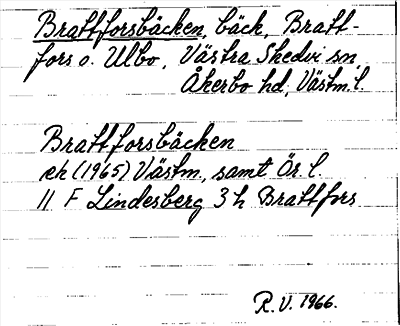 Brattforsbäcken, bäck, Bratt-
fors o. Ulbo, Västra Skedvi sn,
Åkerbo hd, Västm. l.
Brattforsbäcken
ek (1965) Västm., samt Ör. l.
11 F Lindesberg 3 h Brattfors
R.V. 1966.